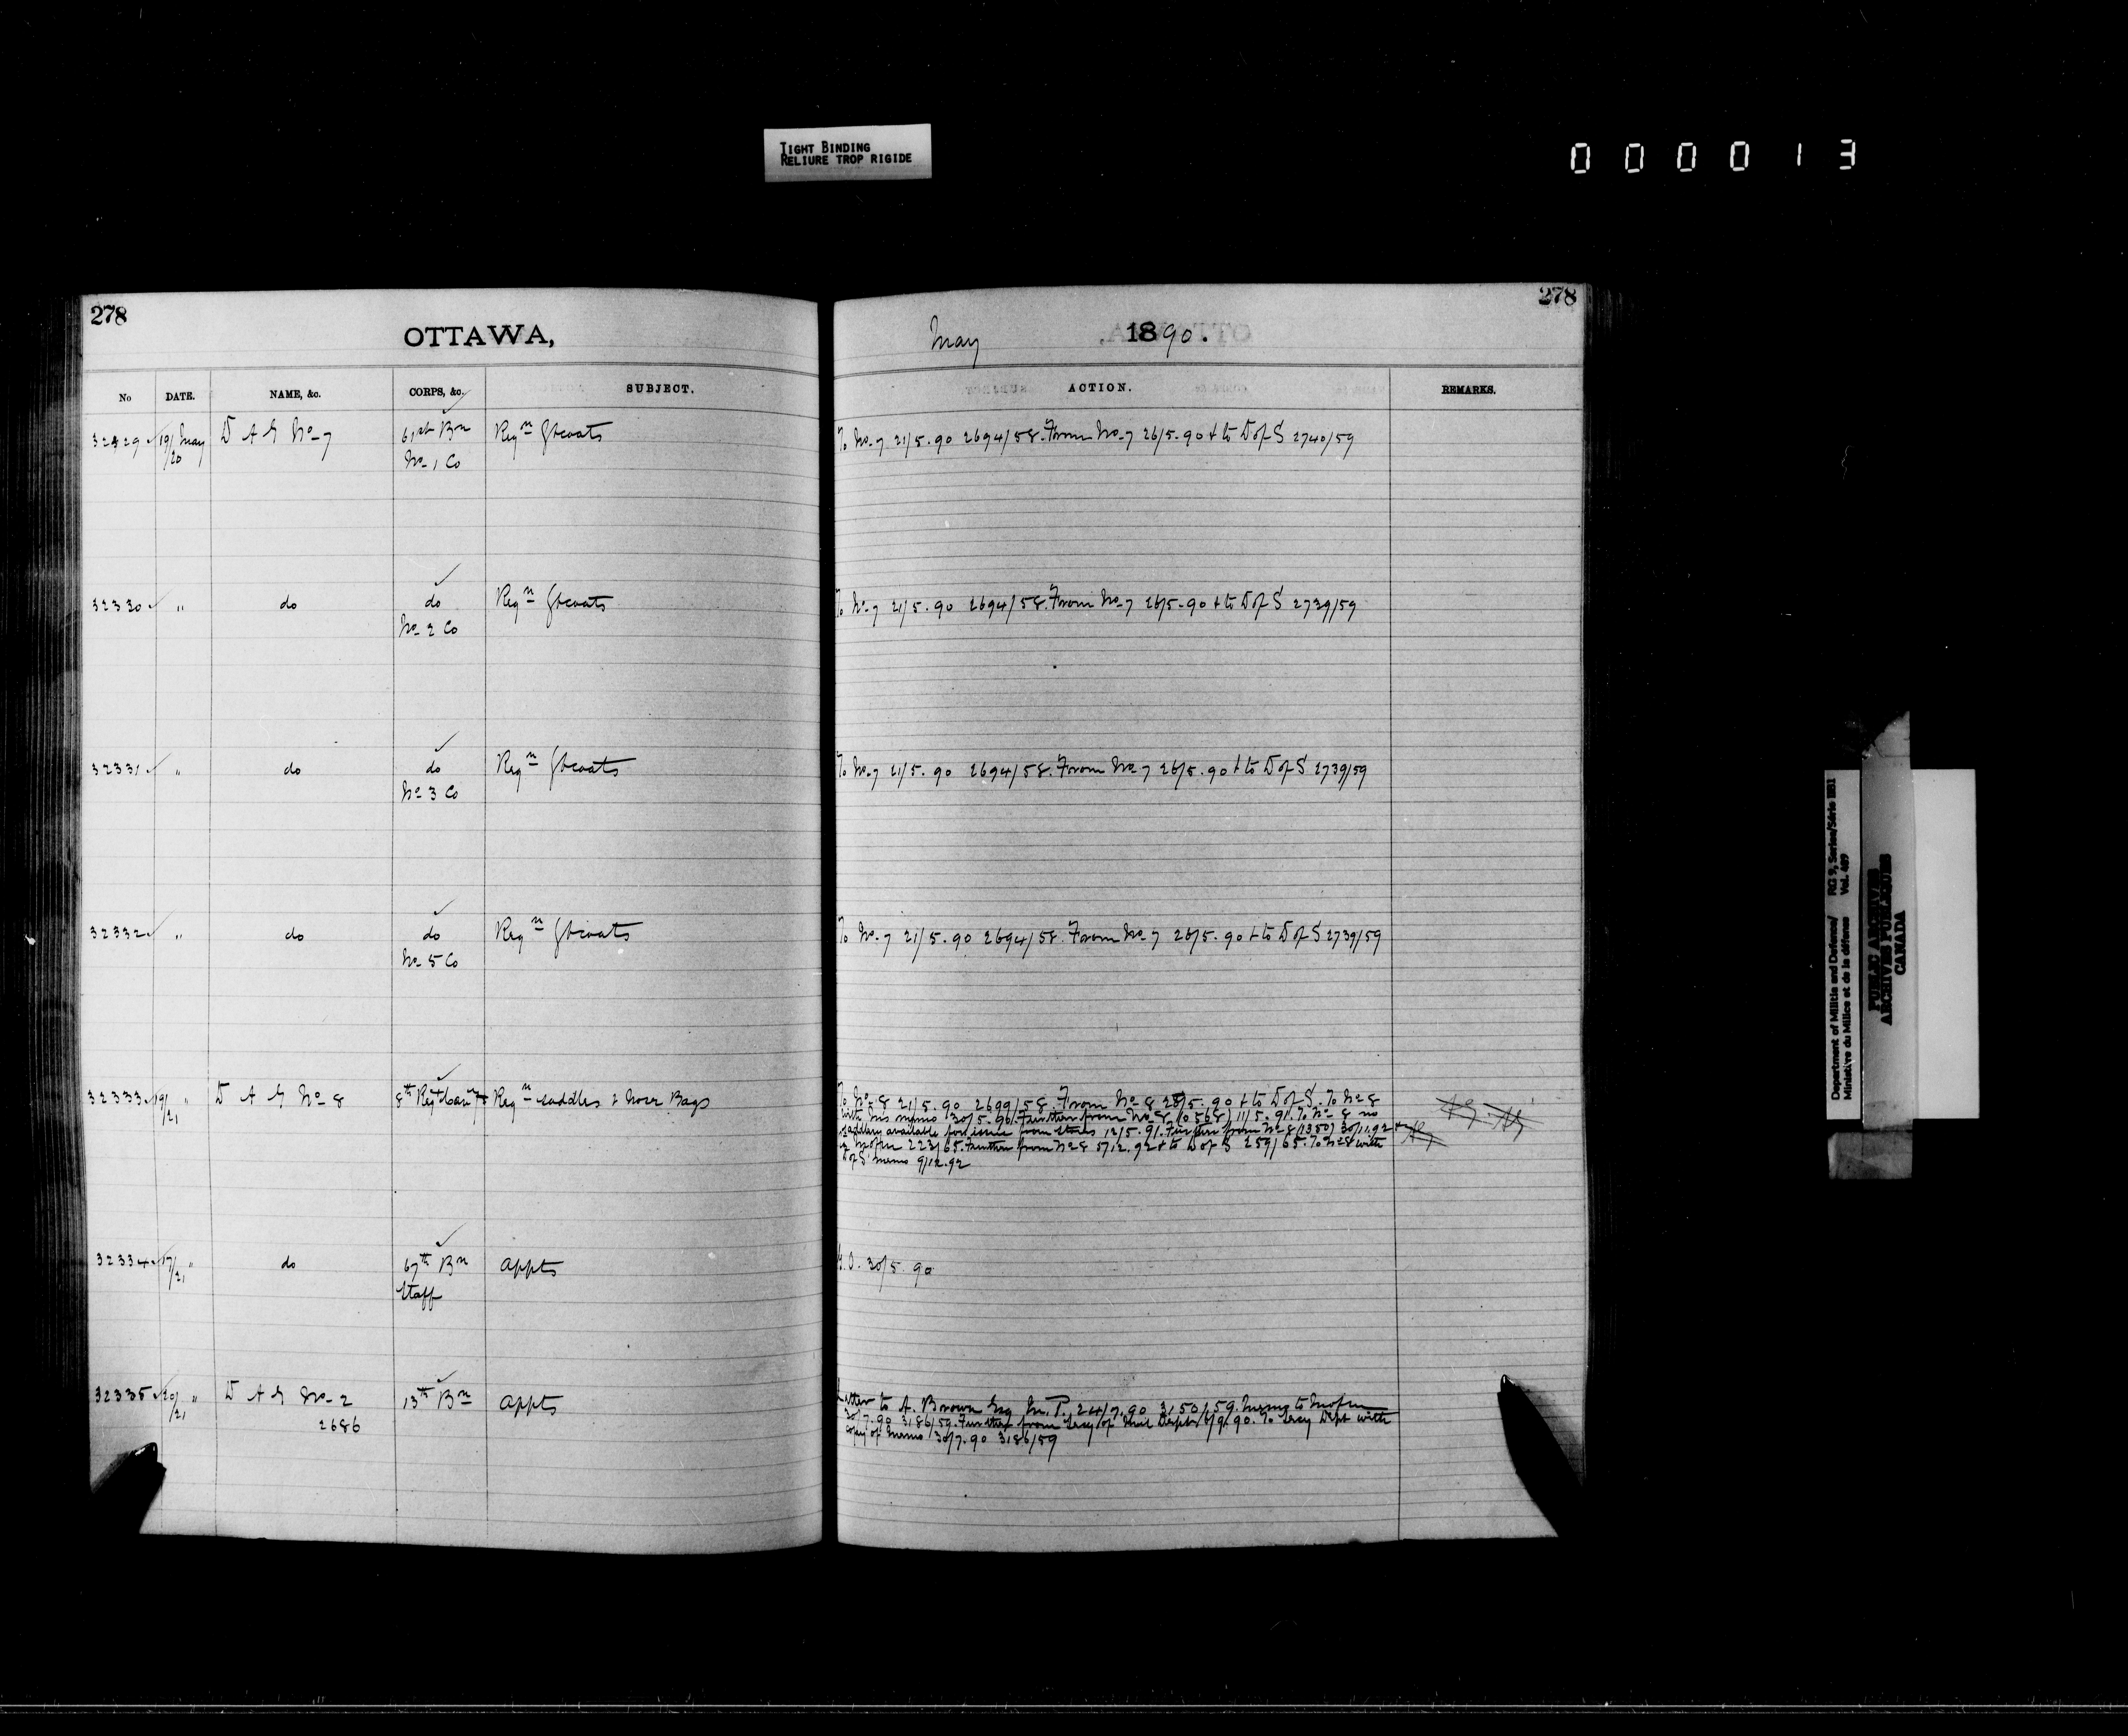 TIGHT BINDING
RELIURE TROP RIGIDE
000013
278
OTTAWA,
No DATE. NAME, &c. CORPS, &c. SUBJECT.
32329 19/20 May D A G No 7 61st Bn Reqn Gtcoats
No 1 Co
32330 " do do Reqn Gtcoats
No 2 Co
32331 " do do Reqn Gtcoats
No 3 Co
32332 " do do Reqn Gtcoats
No 5 Co
32333 19/21 " D A G No 8 8th Regt Cavy Reqn saddles & nose Bags
32334 17/21 " do 67th Bn Appts
Staff
32335 20/21 " D A G No 2 13th Bn Appts
2686
278
May 1890.
ACTION. REMARKS.
To No 7 21/5.90 2694/58. From No 7 26/5.90 & to D of S 2740/59
To No 7 21/5.90 2694/58. From No 7 26/5.90 & to D of S 2739/59
To No 7 21/5.90 2694/58. From No 7 26/5.90 & to D of S 2739/59
To No 7 21/5.90 2694/58. From No 7 26/5.90 & to D of S 2739/59
To No 8 21/5.90 2699/58. From No 8 28/5.90 & to D of S. To No 8
with his memo 30/5.90. Further from No 8 (0568) 11/5.91. To No 8 no
saddlery available for issue from Stores 12/5.91. Further from No 8 (1350) 30/11.92 &
223/65. Further from No 8 5/12.92 & to D of S 259/65. To No 8 with
D of S' memo 9/12.92
G.O. 30/5.90
Letter to A. Brown Esq M.P. 24/7.90 3150/59. Memo to
30/7.90 3186/59. Further from Secy of Dept 6/9.90. To Secy Dept with
copy of memo 30/7.90 3186/59
Department of Militia and Defence/ RG 9, Series/Série IIB1
Ministère du Milice et de la défense Vol. 407
PUBLIC ARCHIVES
ARCHIVES PUBLIQUES
CANADA